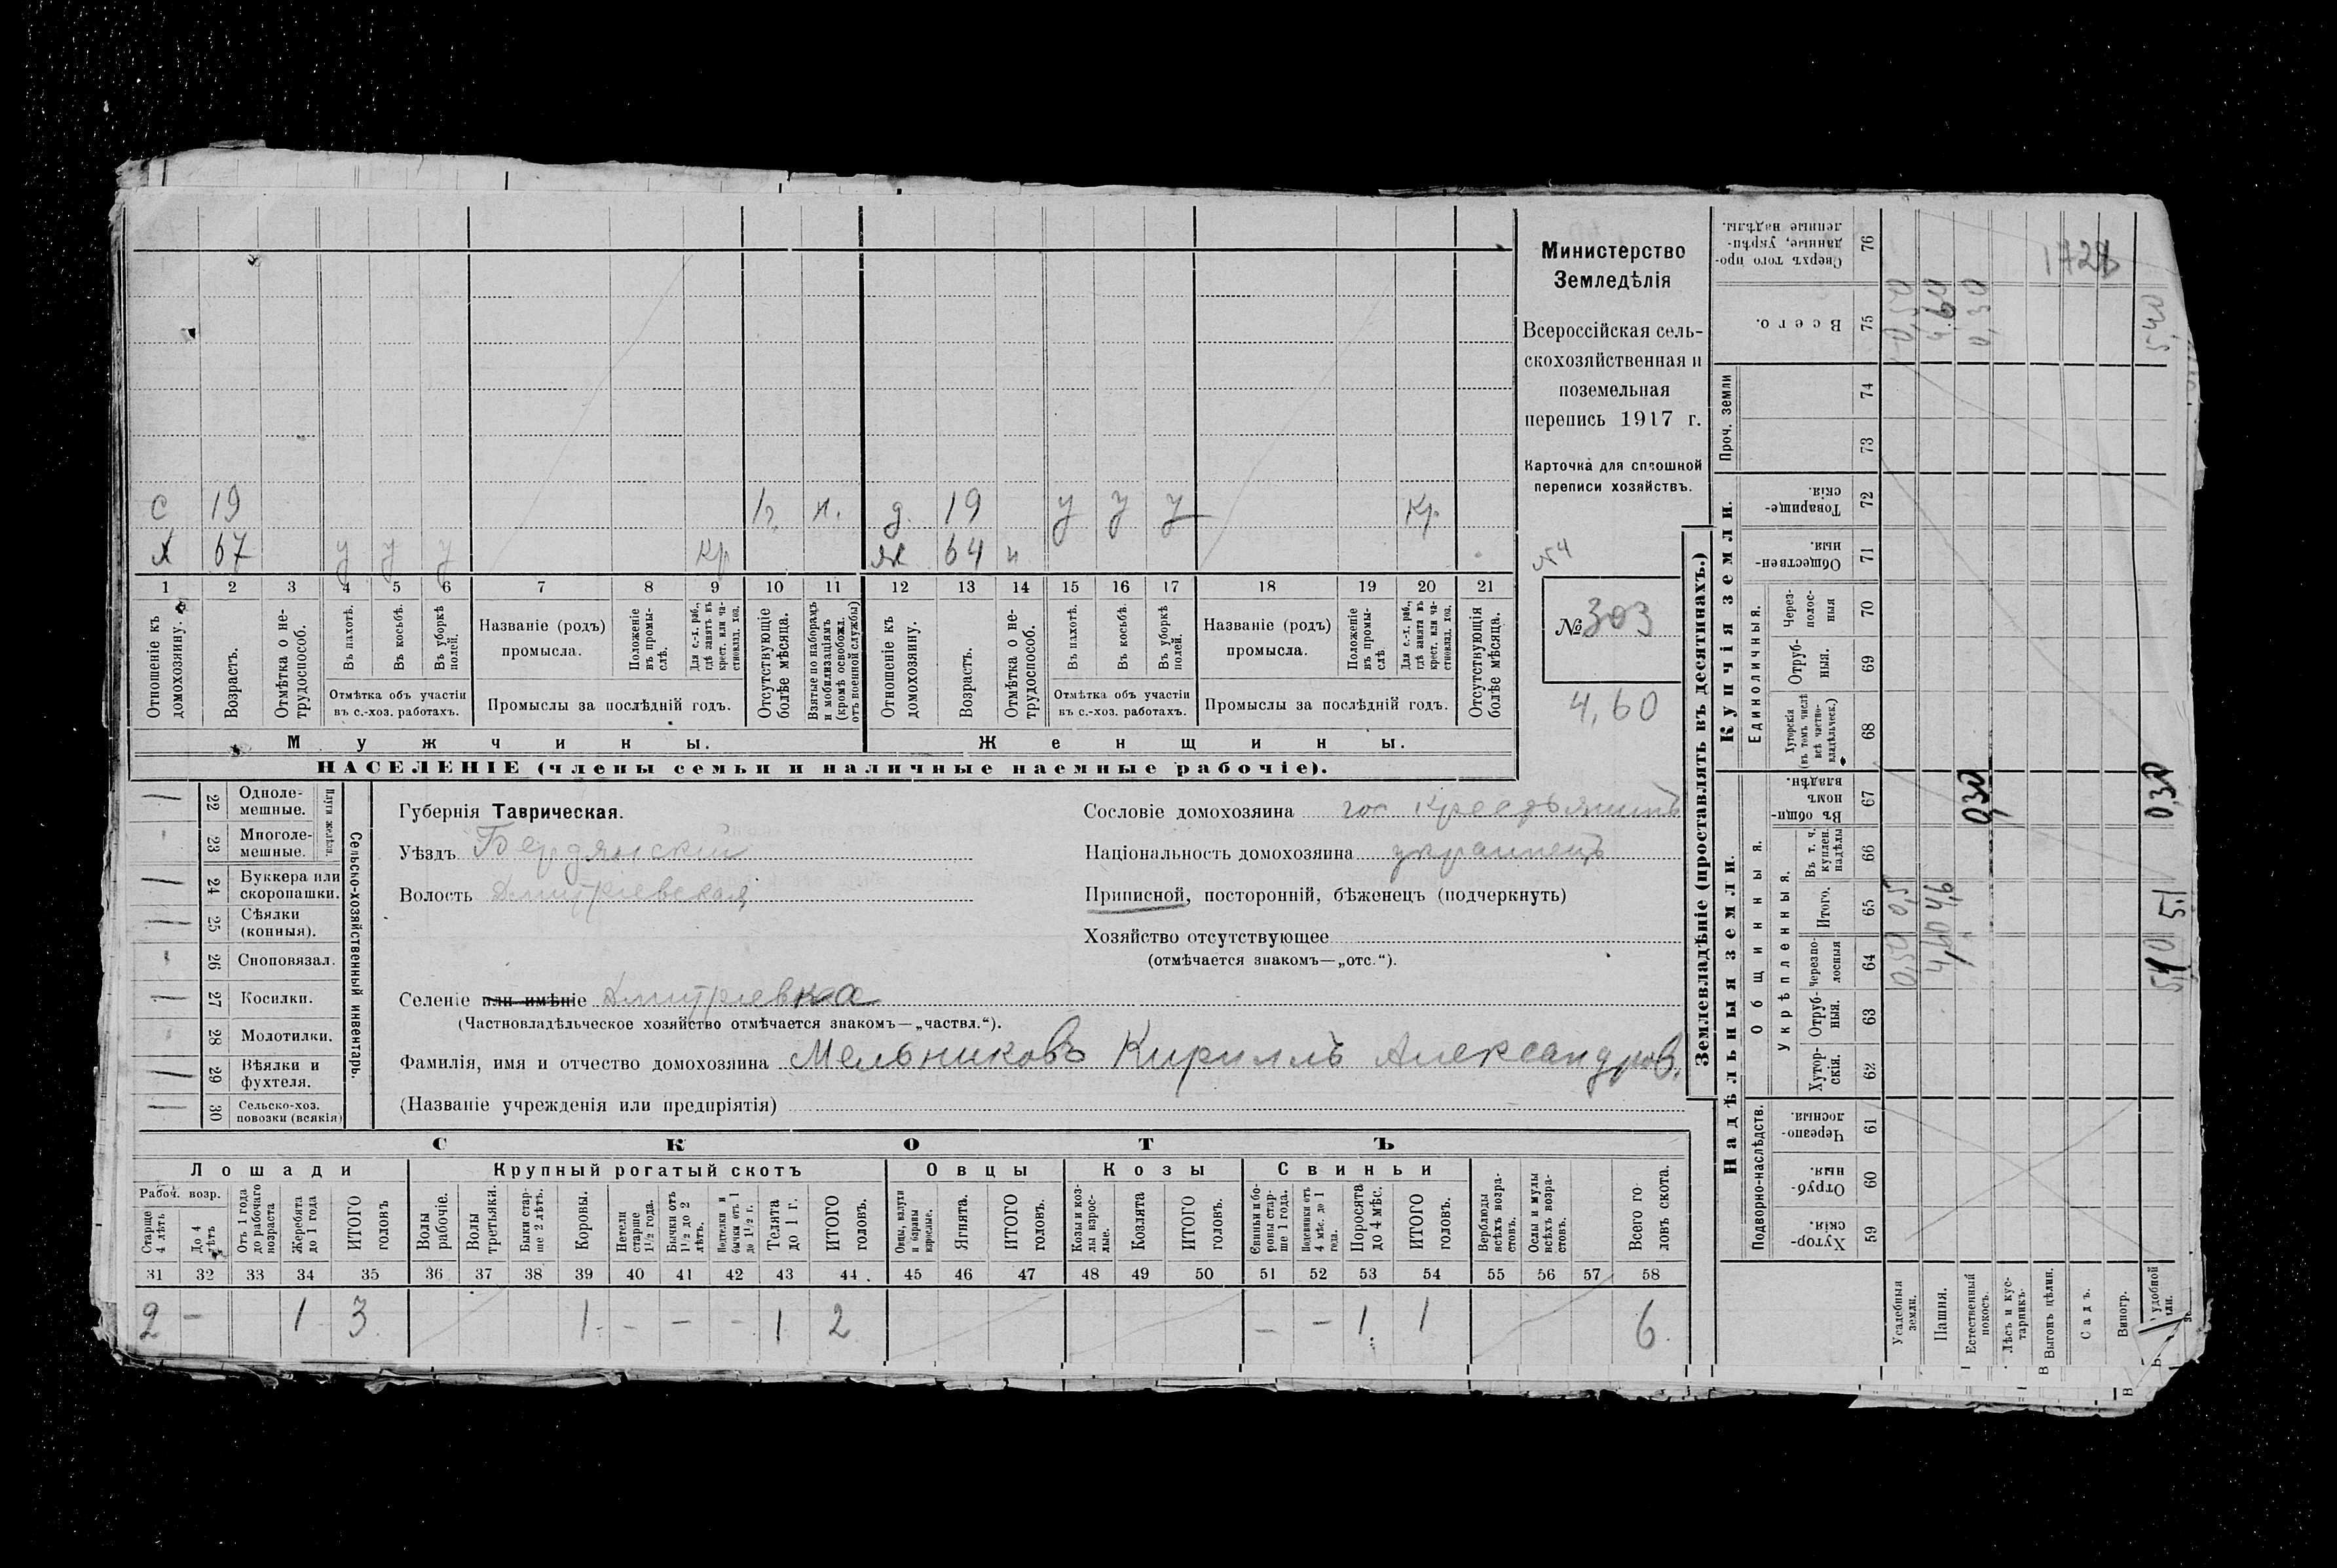 Министерство
Земледѣлія
Всероссійская сель-
скохозяйственная и
поземельная
перепись 1917 г.
Карточка для сплошной
переписи хозяйствъ.
№ 4
№ 303
4,60
с 19 1г. н. д. 19 у у у Кр.
х 67 у у у Кр ж 64 н
1 2 3 4 5 6 7 8 9 10 11 12 13 14 15 16 17 18 19 20 21
Отношеніе къ домохозяину.
Возрастъ.
Отмѣтка о не-трудоспособ.
Въ пахотѣ.
Въ косьбѣ.
Въ уборкѣ полей.
Отмѣтка объ участіи въ с.-хоз. работахъ.
Названіе (родъ) промысла.
Положеніе въ промы-слѣ.
Для с.-х. раб., гдѣ занятъ въ крест. или ча-стновлад. хоз.
Промыслы за послѣдній годъ.
Отсутствующіе болѣе мѣсяца.
Взятые по наборамъ и мобилизаціямъ (кромѣ освобожд. отъ военной службы)
Отношеніе къ домохозяину.
Возрастъ.
Отмѣтка о не-трудоспособ.
Въ пахотѣ.
Въ косьбѣ.
Въ уборкѣ полей.
Отмѣтка объ участіи въ с.-хоз. работахъ.
Названіе (родъ) промысла.
Положеніе въ промы-слѣ
Для с.-х. раб., гдѣ занята въ крест. или ча-стновлад. хоз.
Промыслы за послѣдній годъ.
Отсутствующія болѣе мѣсяца.
Мужчины.
Женщины.
НАСЕЛЕНІЕ (члены семьи и наличные наемные рабочіе).
Сельско-хозяйственный инвентарь.
Плуги желѣзн.
22 Одноле-мешные.
23 Многоле-мешные.
24 Буккера или скоропашки.
25 Сѣялки (конныя).
26 Сноповязал.
27 Косилки.
28 Молотилки.
29 Вѣялки и фухтеля.
30 Сельско-хоз. повозки (всякія)
Губернія Таврическая.
Уѣздъ Бердянскій
Волость Дмитріевская
Селеніе или имѣніе Дмитріевка
(Частновладѣльческое хозяйство отмѣчается знакомъ—„частвл.“).
Фамилія, имя и отчество домохозяина Мельниковъ Кириллъ Александров.
(Названіе учрежденія или предпріятія)
Сословіе домохозяина гос крестьянинъ
Національность домохозяина украинецъ
Приписной, посторонній, бѣженецъ (подчеркнуть)
Хозяйство отсутствующее
(отмѣчается знакомъ—„отс.“).
СКОТЪ
Лошади
Крупный рогатый скотъ
Овцы
Козы
Свиньи
Рабоч. возр.
Старше 4 лѣтъ
До 4 лѣтъ
Отъ 1 года до рабочаго возраста
Жеребята до 1 года
ИТОГО головъ
Волы рабочіе.
Волы третьяки.
Быки стар-ше 2 лѣтъ.
Коровы.
Нетели старше 1½ года.
Бычки отъ 1½ до 2 лѣтъ.
Подтелки и бычки отъ 1 до 1½ г.
Телята до 1 г.
ИТОГО головъ.
Овцы, валухи и бараны взрослые.
Ягнята.
ИТОГО головъ.
Козы и коз-лы взрос-лые.
Козлята
ИТОГО головъ.
Свиньи и бо-ровы стар-ше 1 года.
Подсвинки отъ 4 мѣс. до 1 года.
Поросята до 4 мѣс.
ИТОГО головъ.
Верблюды всѣхъ возра-стовъ.
Ослы и мулы всѣхъ возра-стовъ.
Всего го-ловъ скота.
31 32 33 34 35 36 37 38 39 40 41 42 43 44 45 46 47 48 49 50 51 52 53 54 55 56 57 58
2 – 1 3 1 – – – 1 2 – – 1 1 6
Землевладѣніе (проставлять въ десятинахъ.)
Купчія земли.
Проч. земли
Единоличныя.
Надѣльныя земли.
Общинныя.
Укрѣпленныя.
Подворно-наслѣдств.
76 Сверхъ того про-данные, укрѣп-ленные надѣлы.
75 Всего.
74
73
72 Товарище-скія.
71 Обществен-ныя.
70 Через-полос-ныя
69 Отруб-ныя.
68 Хуторскія (въ томъ числѣ всѣ частно-владѣльческ.)
67 Въ общин-номъ владѣн.
66 Въ т. ч. куплен. надѣлы
65 Итого.
64 Черезпо-лосныя
63 Отруб-ныя.
62 Хутор-скія.
61 Черезпо-лосныя.
60 Отруб-ныя.
59 Хутор-скія.
Усадебныя земли.
Пашня.
Естественный покосъ.
Лѣсъ и кус-тарникъ.
Выгонъ цѣлин.
Садъ.
Виногр.
удобной
0,50 0,5 0,50
4,60 4,6 4,60
0,30 0,30
5,10 5,1 0,30 5,40